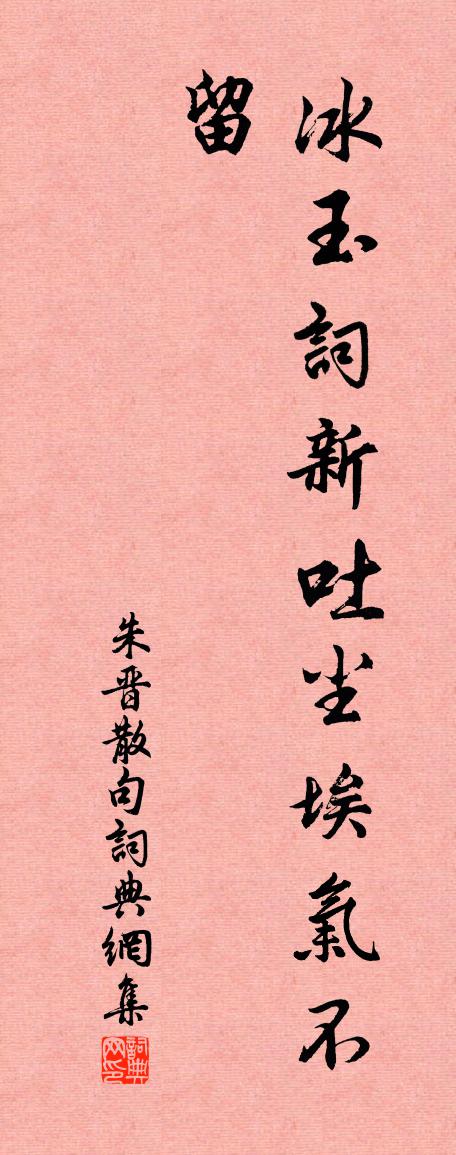 冰玉詞新吐尘埃氣不
留
朱晋散句詞典網集
詞典
网印